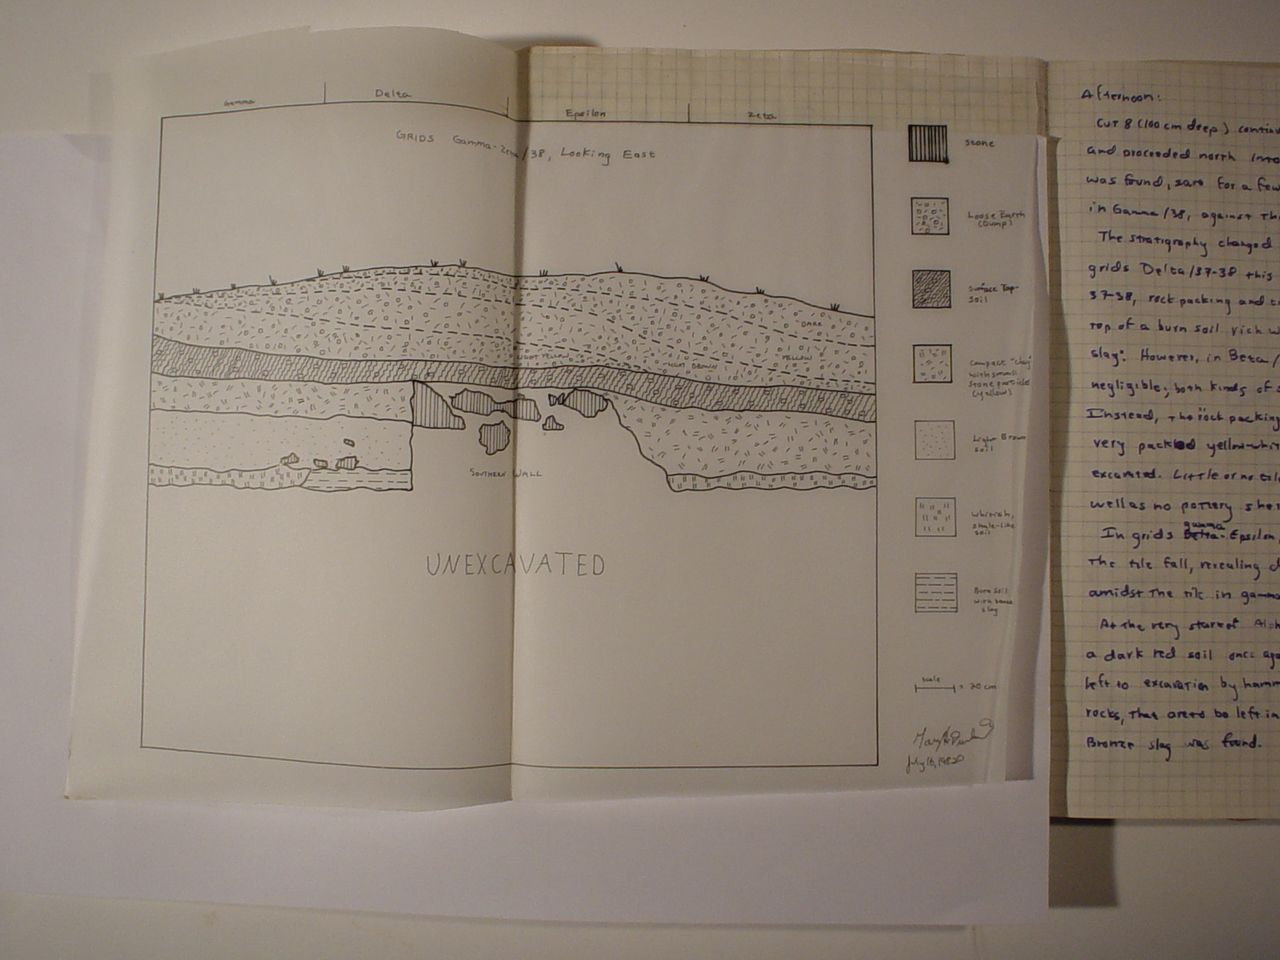 Gamma
Delta
Epsilon
Zeta
GRIDS Gamma-Zeta/38, Looking East
DARK
LIGHT YELLOW
LIGHT BROWN
YELLOW
SOUTHERN WALL
UNEXCAVATED
Stone
Loose Earth
(Dump)
Surface Top-
soil
Compact "clay"
with small
stone particles
(yellow)
Light Brown
soil
Whitish,
soil
Burn soil
with bronze
slag
scale
= 20 cm
July 16, 1982
Afternoon:
Cut 8 (100 cm deep)
and proceeded north
was found, save for a few
in Gamma/38, against
The stratigraphy changed
grids Delta/37-38 this
37-38, rock packing and
top of a burn soil rich
slag. However, in Beta/
negligible; both kinds of
Instead, the rock packing
very packed yellow-whit
excavated. Little or no
well as no pottery
In grids gamma-Epsilon,
the tile fall, revealing
amidst the tile in gamma
At the very start of
a dark red soil once
left to excavation by
rocks, that are to be left in
Bronze slag was found.